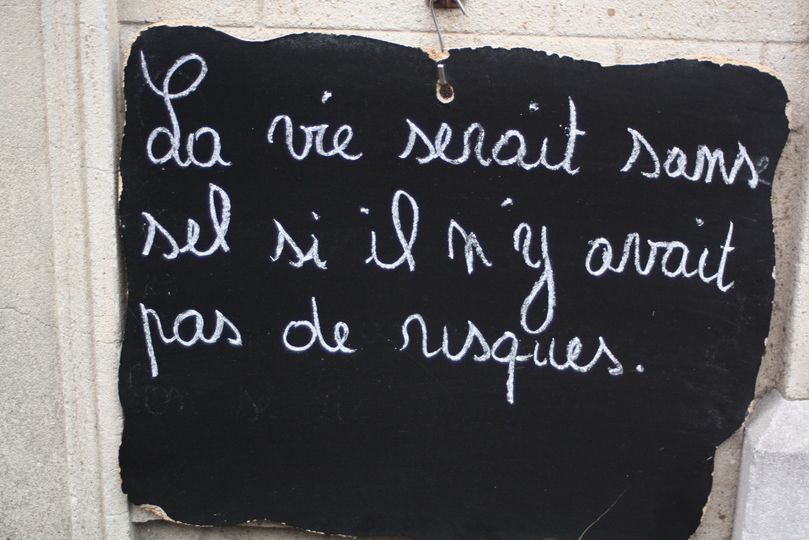 La vie serait sans
sel si il n'y avait
pas de risques.